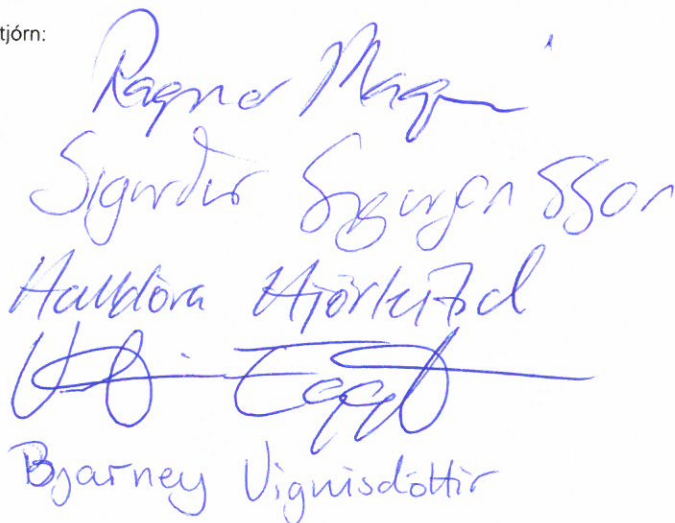 tjórn:
Ragnar Magn
Sigurður Sigurjónsson
Halldóra Hjörleifsd
Bjarney Vignisdóttir